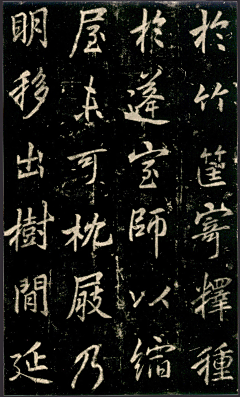 於竹筐寄擇種
於蓬室師以縮
屋未可枕屐乃
明移出樹間延